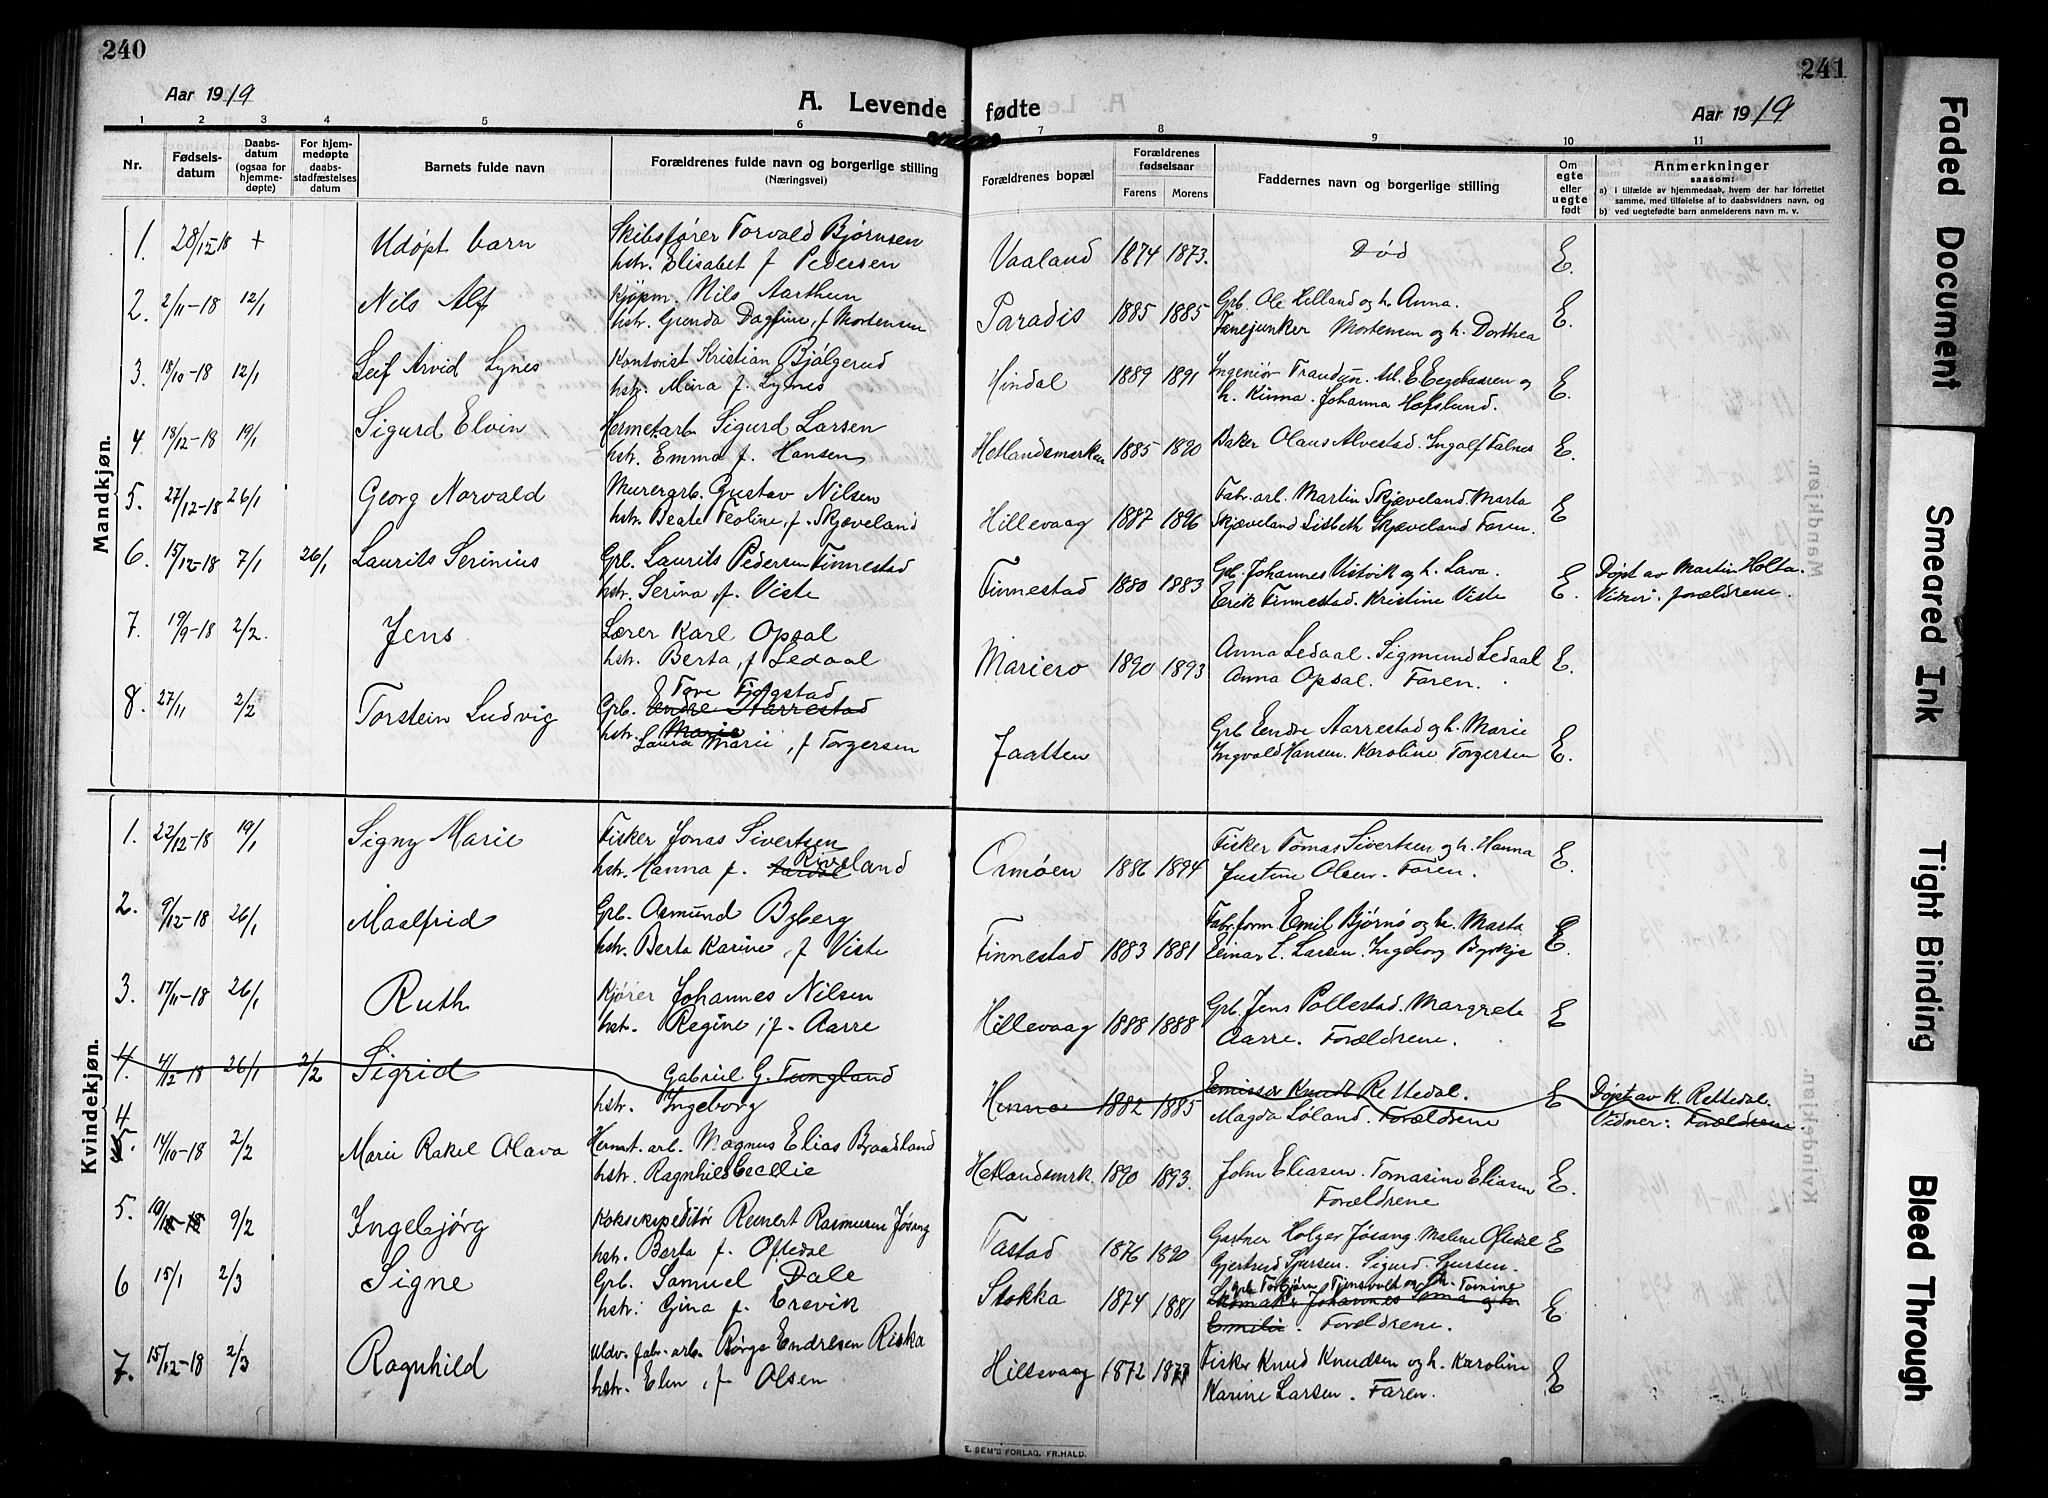 240
241
Aar 1919
A. Levende fødte
Aar 1919
1 2 3 4 5 6 7 8 9 10 11
Nr.
Fødselsdatum
Daabsdatum (ogsaa for hjemmedøpte)
For hjemmedøpte daabsstadfæstelses datum
Barnets fulde navn
Forældrenes fulde navn og borgerlige stilling
(Næringsvei)
Forældrenes bopæl
Forældrenes fødselsaar
Farens Morens
Faddernes navn og borgerlige stilling
Om egte eller uegte født
Anmerkninger
saasom:
a) i tilfælde av hjemmedaab, hvem der har forrettet
samme, med tilføielse af to daabsvidners navn, og
b) ved uegtefødte barn anmelderens navn m. v.
Mandkjøn.
1. 28/12-18 + Udøpt barn Skibsfører Torvald Bjørnsen Vaaland 1874 1873. Død E.
hstr. Elisabet f Pedersen
2. 2/11-18 12/1 Nils Alf Kjøpm. Nils Aarthun Paradis 1885 1885 Grb. Ole Helland og h. Anna. E.
hstr. Gunda Dagfine, f Mortensen Fanejunker Mortensen og h. Dorthea
3. 18/10-18 12/1 Leif Arvid Lynes Kontorist Kristian Bjølgerud Hindal 1889 1891 Ingeniør og E.
hstr. Mina f. Lynes h. Kinna. Johanna Hafslund.
4 18/12-18 19/1 Sigurd Elvin Hermet.arb. Sigurd Larsen Hetlandsmarken 1885 1890 Baker Olaus Alvestad. Ingolf Falnes E.
hstr. Emma f. Hansen
5. 27/12-18 26/1 Georg Norvald Murergrb. Gustav Nilsen Hillevaag 1887 1896 Fabr. arb. Martin Skjæveland. Marta E
hstr. Beate Teoline, f. Skjæveland Skjæveland Lisbeth Skjæveland Faren.
6. 15/12-18 7/1 26/1 Laurits Serinius Grb. Laurits Pedersen Finnestad Finnestad 1880 1883 Grb. Johannes Vistvik og h. Lava. E. Døpt av Martin Holta.
hstr. Serina, f. Viste Eerik Finnestad. Kristine Viste Vidner: forældrene.
7. 19/9-18 2/2. Jens Lærer Karl Opsal Mariero 1890 1893 Anna Ledaal. Sigmund Ledaal E.
hstr. Berta, f Ledaal Anna Opsal. Faren.
8. 27/11 2/2 Torstein Ludvig Tore Fjogstad
Grb. Endre Aarrestad Jaatten Grb Eendre Aarrestad og h. Marie E.
hstr. Marie
Laura Marie, f Torgersen Ingvald Hansen. Karoline Torgersen
Kvindekjøn.
1. 22/12-18 19/1 Signy Marie Fisker Jonas Sivertsen Ormøen 1886 1894 Fisker Tomas Sivertsen og h. Hanna E.
hstr. Hanna f. Riveland Justine Olsen. Faren.
2. 9/12-18 26/1 Maalfrid Grb. Asmund Byberg Finnestad 1883 1881 Fabr. form Emil Bjørnø og h. Marta E.
hstr. Berta Karine, f Viste Einar L. Larsen. Ingeborg Byrkje
3. 17/11-18 26/1 Ruth Kjører Johannes Nilsen Hillevaag 1888 1888 Grb. Jens Pollestad. Margrete E
hstr. Regine, f. Aarre Aarre. Forældrene.
4. 4/12-18 26/1 2/2 Sigrid Gabriel G. Tungland Hinna 1882 1885 Emissær Knudt Rettedal. E Døpt av K. Rettedal.
hstr. Ingeborg Magda Løland. Forældrene Vidner: Forældrene.
4
5. 14/10-18 2/2 Marie Rakel Olava Hermt. arb. Magnus Elias Braadland Hetlandsmrk. 1890 1893. John Eliasen. Tomasine Eliasen E.
hstr. Ragnhild Cecelie Forældrene
5. 9/2 Ingebjörg Koksekspeditör Reinert Rasmusen Jøsang Tastad 1876 1890 Gartner Holger Jøsang. Malene Oftedal E
hstr. Berta f. Oftedal Gjertrud Sjursen. Sigurd Sjursen.
6 15/1 2/3 Signe Grb. Samuel Dale Stokka 1874 1881 grb Torbjørn Tjensvolt og h. Tomine
Skomak. Johannes Soma og h E
hstr: Gina f. Erevik Emilie. Forældrene.
7. 15/12-18 2/3 Ragnhild Uldv. fabr. arb. Børge Endresen Riska Hillevaag 1872 1877 Fisker Knud Knudsen og h. Karoline E
hstr. Elen, f Olsen Karine Larsen. Faren.
E. SEM'S FORLAG. FR.HALD.
Faded Document
Smeared Ink
Tight Binding
Bleed Through